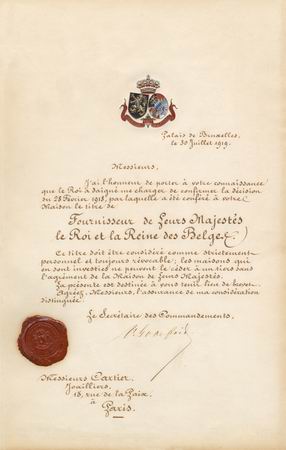 Palais de Bruxelles,
le 30 Juillet 1919.
Messieurs,
J'ai l'honneur de porter à votre connaissance
que le Roi a daigné me charger de confirmer la décision
du 28 Février 1918, par laquelle a été conféré à votre
Maison le titre de
Fournisseur de Leurs Majestés
le Roi et la Reine des Belges.
Ce titre doit être considéré comme strictement
personnel et toujours révocable; les maisons qui
en sont investies ne peuvent le céder à un tiers sans
l'agrément de la Maison de Leurs Majestés.
La présente est destinée à vous tenir lieu de brevet.
Agréez, Messieurs, l'assurance de ma considération
distinguée.
Le Secrétaire des Commandements,
Messieurs Cartier,
Joailliers,
13, rue de la Paix,
à
Paris.